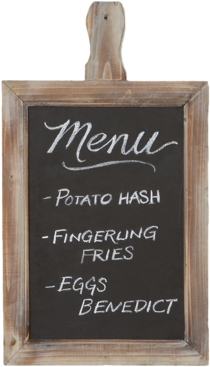 Menu
- POTATO HASH
- FINGERLING
FRIES
- EGGS
BENEDICT